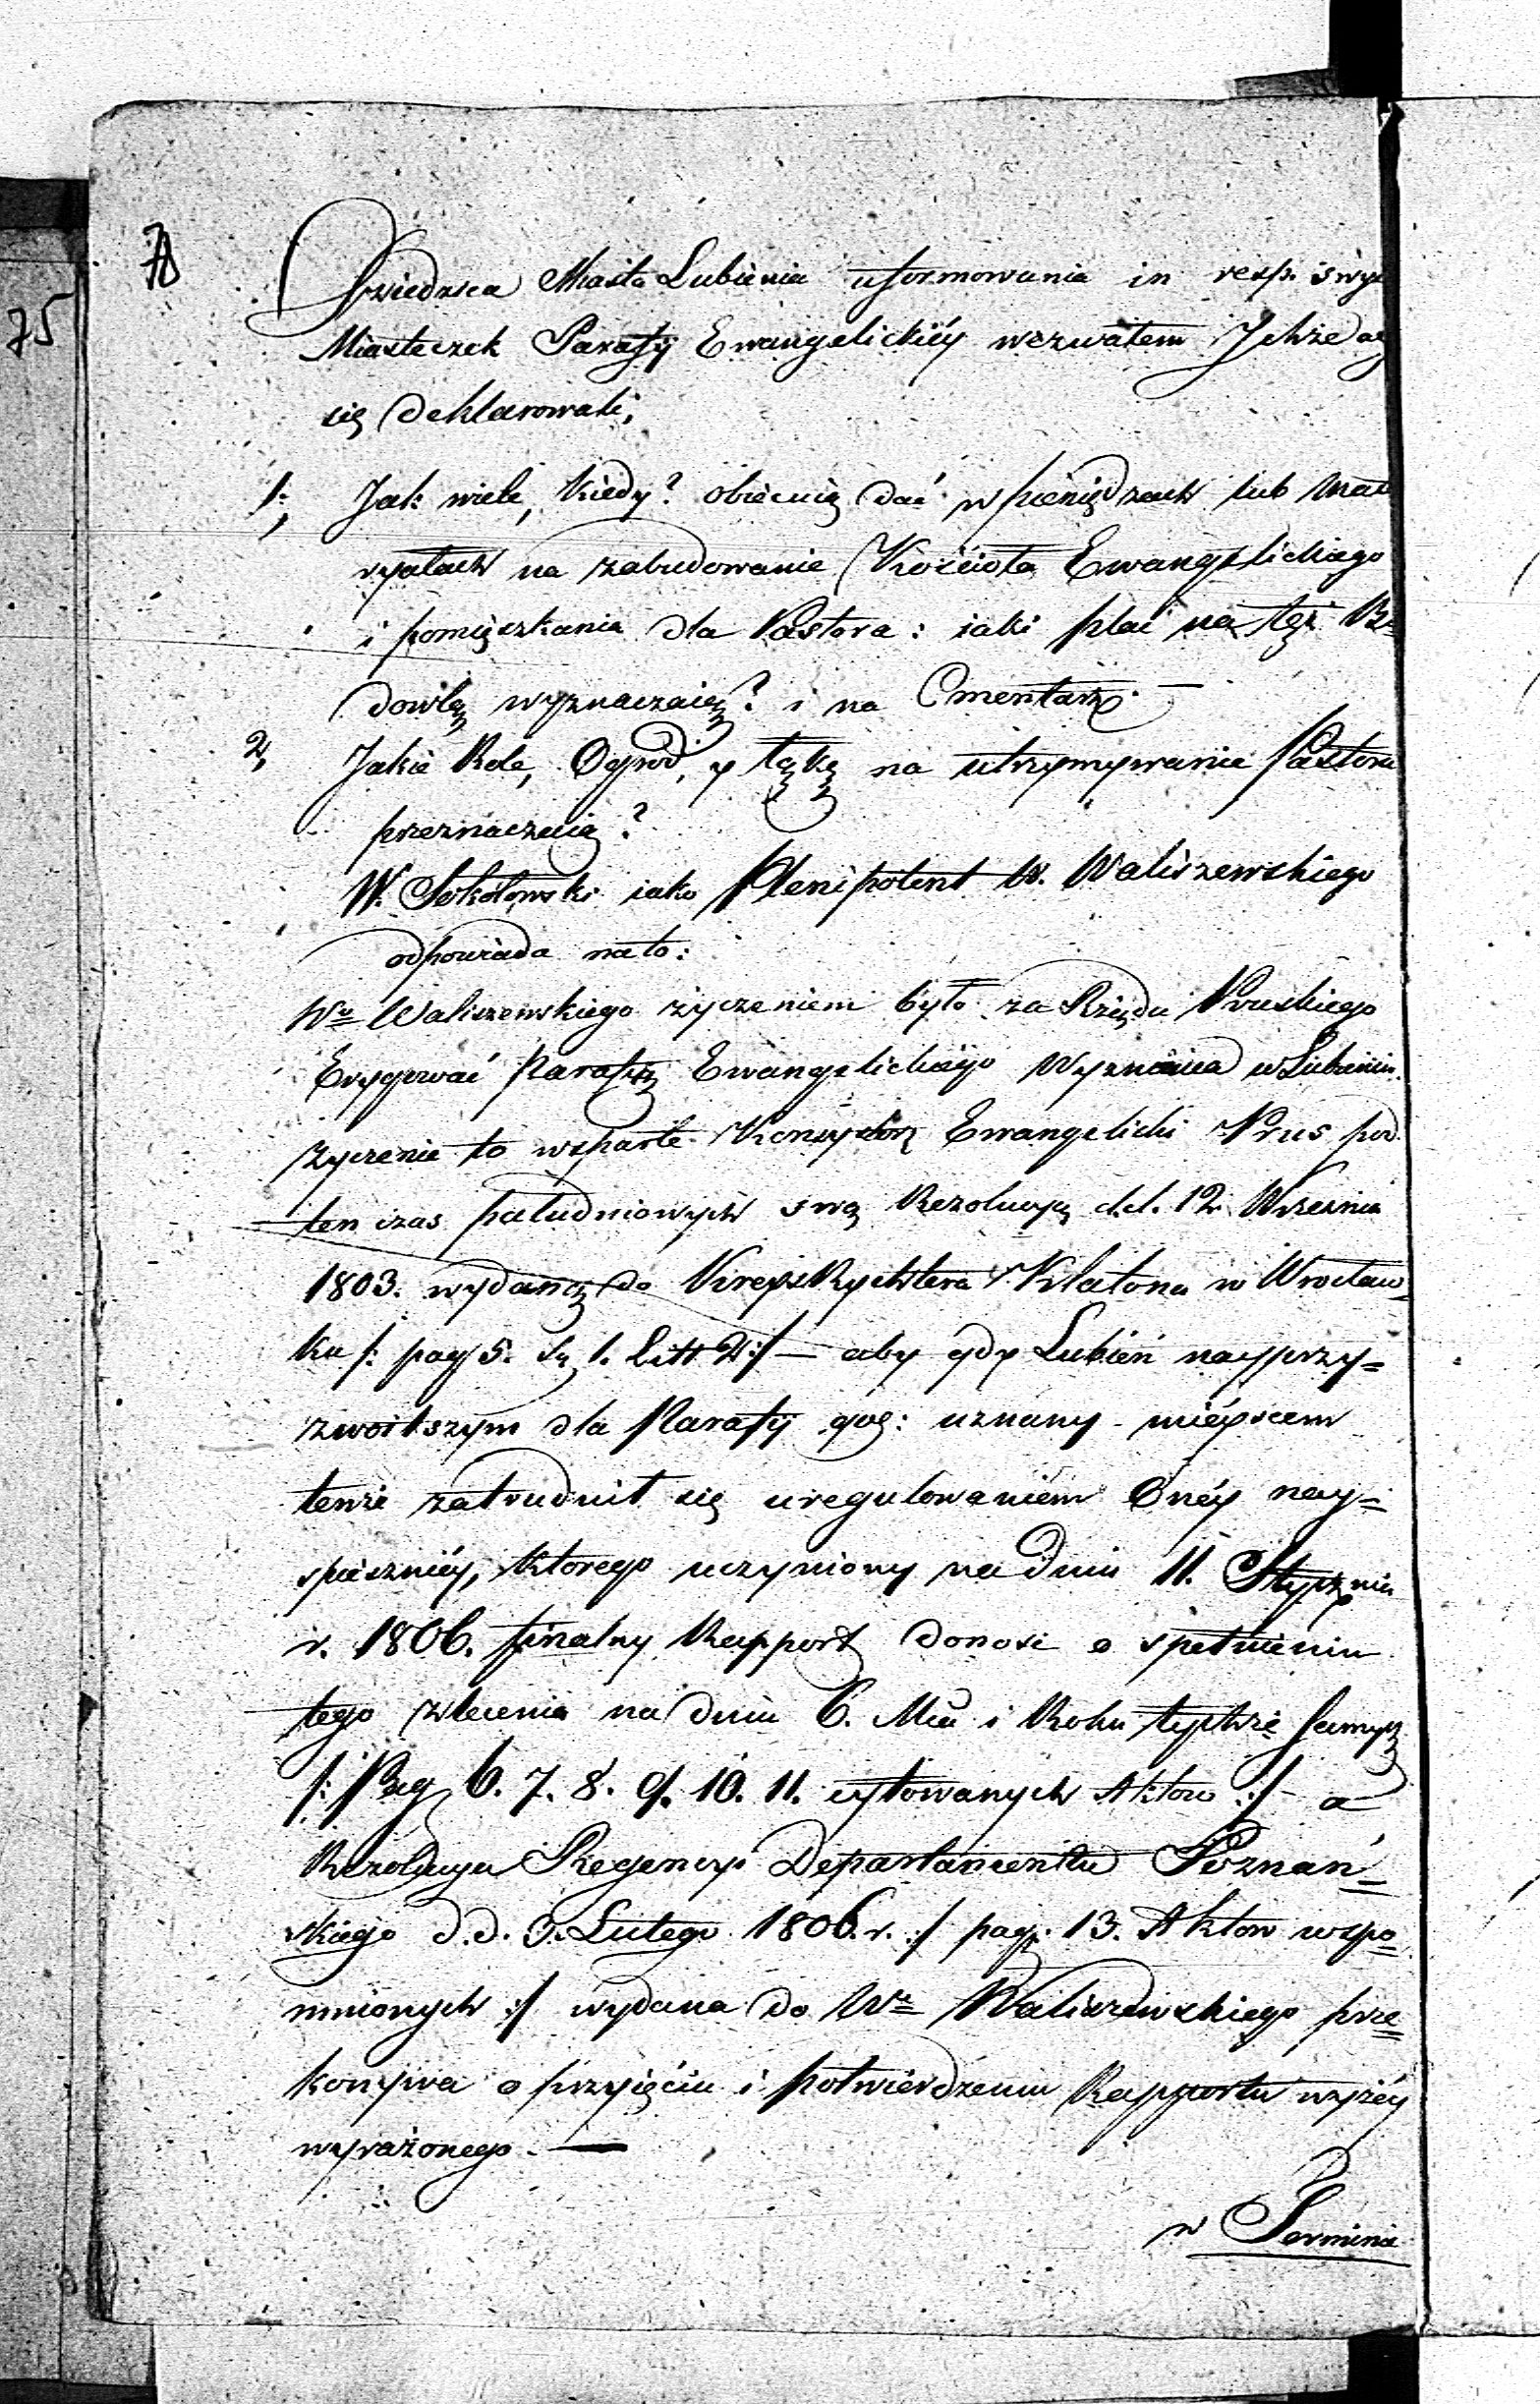 78
75
Dziedzica Miasta Lubienia uformowania in resp. swych
Miasteczek Parafij Ewangelickiéy wezwałem Ichże aby
się deklarowali,
1; Jak wiele, kiedy? obiecuią dać w pieniędzach lub Mate
ryałach na zabudowanie Kościoła Ewangelickiego
i pomięszkania dla Pastora: iaki plac na tęż Bu=
dowlę wyznaczaią? i na Cmentarz. —
2, Jakie Role, Ogrod, y łąkę na utrzymywanie Pastora
przeznaczaią?
W. Sokołowski iako Plenipotent W. Waliszewskiego
odpowiada na to:
Wo Waliszewskiego życzeniem było za Rządu Pruskiego
Erygować Parafią Ewangelickiego Wyznania w Lubieniu.
życzenie to wsparte Konsystorz Ewangelicki Prus pod
ten czas południowych swą Rezolucyą d.d. 12 Wrzesnia
1803. wydaną do Kreys Rychtera Platona w Wrocław=
ku /: pag 5. 1. Litt :/ — aby gdy Lubień nayprzy=
zwoitszym dla Parafij qu: uznany mieyscem
tenże zatrudnił się uregulowaniem Onéy nay=
spieszniéy, ktorego uczyniony na dniu 11. Stycznia
r. 1806. finalny Rapport donosi o spełnieniu
tego zlecenia na dniu 6. Mca i Roku tychże samych
/: Pag 6. 7. 8. 9. 10. 11. cytowanych Aktow :/ a
Rezolucya Regencyi Departamentu Poznań=
skiego d.d. 3. Lutego 1806. r. :/ pag: 13. Aktow wspo=
mnionych :/ wydana do Wo Waliszewskiego prze=
konywa o przyięciu i potwierdzeniu Rapportu wyżéy
wyrażonego. —
w Terminie